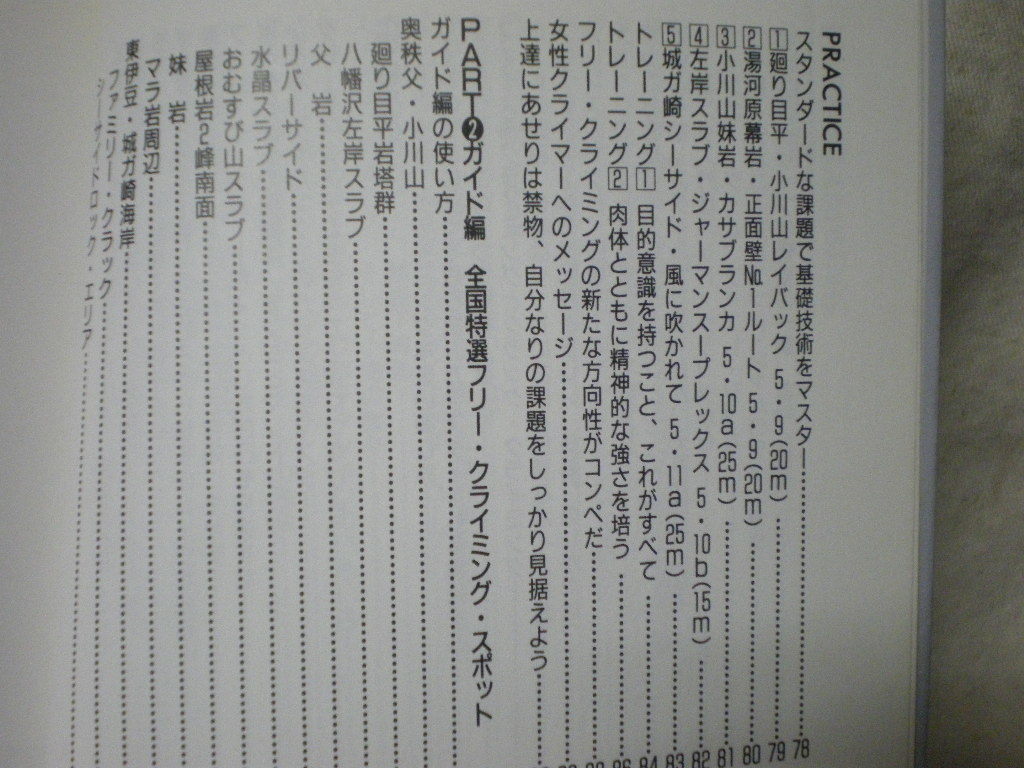 PRACTICE
スタンダードな課題で基礎技術をマスター……78
1 廻り目平・小川山レイバック 5・9(20m)……79
2 湯河原幕岩・正面壁No.1ルート 5・9(20m)……80
3 小川山妹岩・カサブランカ 5・10a(25m)……81
4 左岸スラブ・ジャーマンスープレックス 5・10b(15m)……82
5 城ガ崎シーサイド・風に吹かれて 5・11a(25m)……83
トレーニング1 目的意識を持つこと、これがすべて……84
トレーニング2 肉体とともに精神的な強さを培う……86
フリー・クライミングの新たな方向性がコンペだ……
女性クライマーへのメッセージ……
上達にあせりは禁物、自分なりの課題をしっかり見据えよう……
PART❷ガイド編 全国特選フリー・クライミング・スポット
ガイド編の使い方……
奥秩父・小川山……
廻り目平岩塔群……
八幡沢左岸スラブ……
父 岩……
リバーサイド……
水晶スラブ……
おむすび山スラブ……
屋根岩2峰南面……
妹 岩……
マラ岩周辺……
東伊豆・城ガ崎海岸……
ファミリー・クラック……
シーサイドロック・エリア……